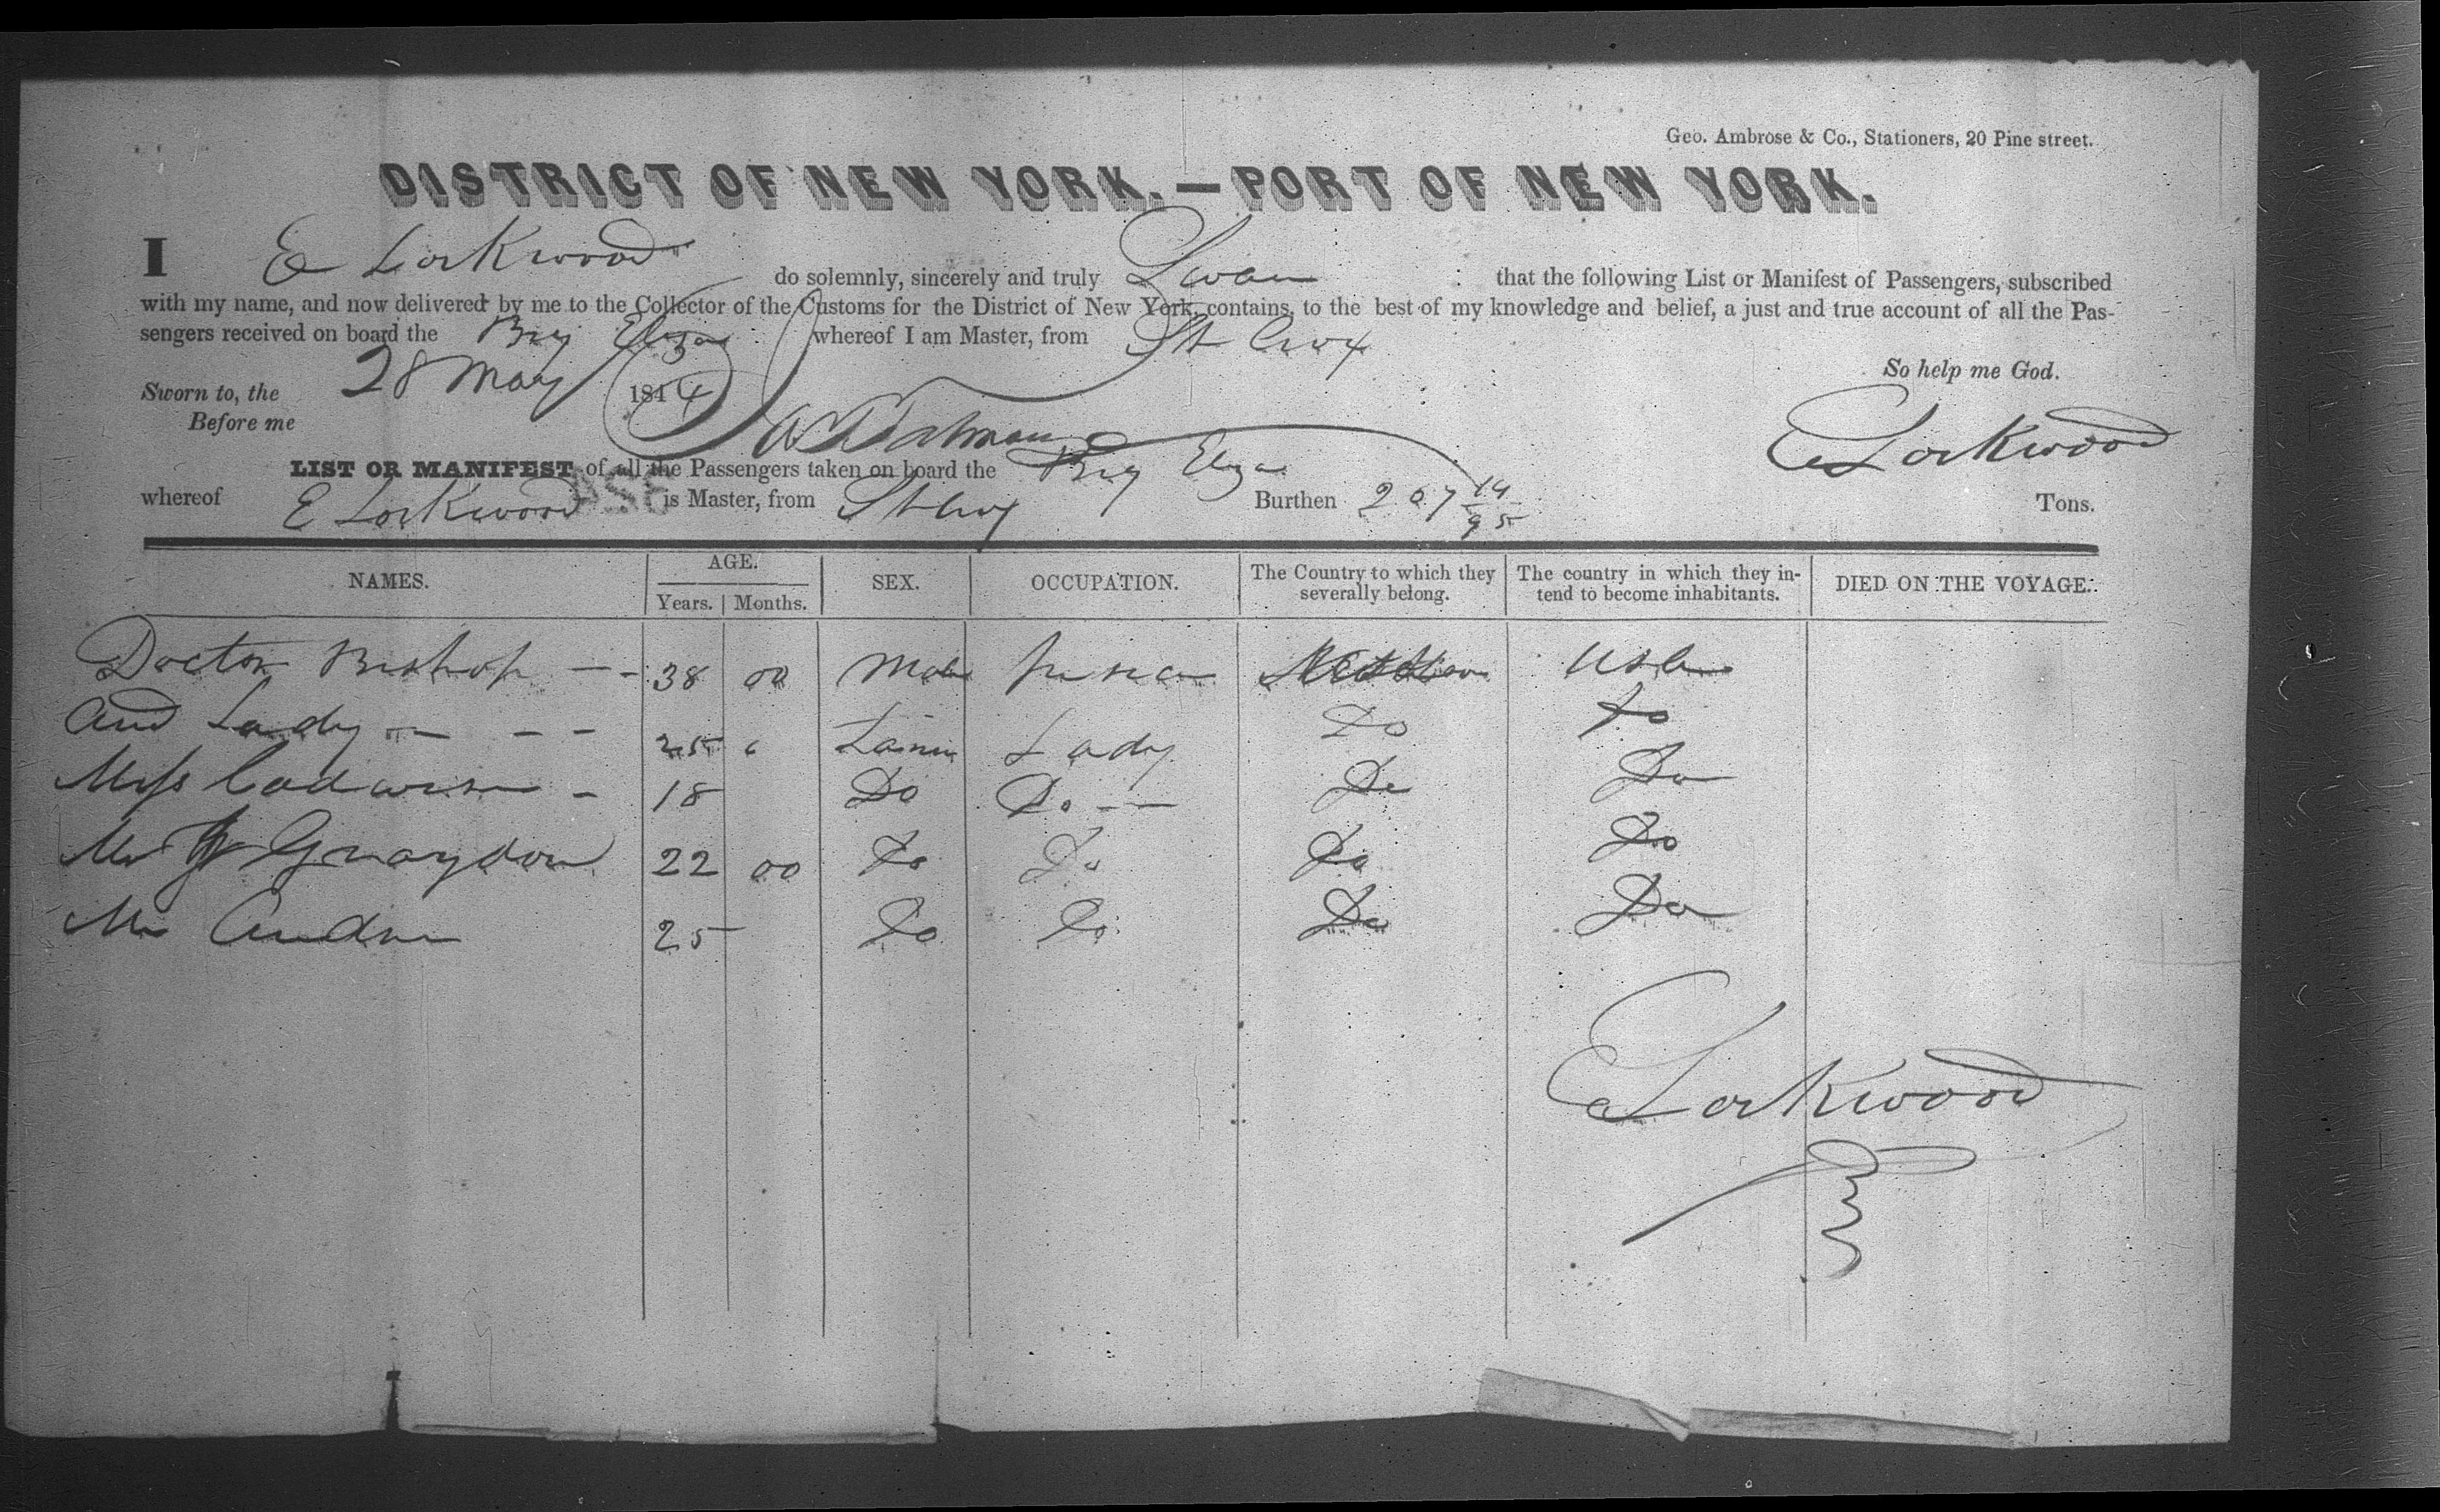 Geo. Ambrose & Co., Stationers, 20 Pine street.
DISTRICT OF NEW YORK.—PORT OF NEW YORK.
I E Lockwood do solemnly, sincerely and truly Swear that the following List or Manifest of Passengers, subscribed
with my name, and now delivered by me to the Collector of the Customs for the District of New York, contains, to the best of my knowledge and belief, a just and true account of all the Pas-
sengers received on board the Brig Eliza whereof I am Master, from St Croix
So help me God.
Sworn to, the 28 May 1844
Before me
E Lockwood
LIST OR MANIFEST of all the Passengers taken on board the Brig Eliza
whereof E Lockwood is Master, from St Croix Burthen 207 14/95 Tons.
NAMES. AGE. SEX. OCCUPATION. The Country to which they severally belong. The country in which they in- tend to become inhabitants. DIED ON THE VOYAGE.
Years. Months.
Doctor Bishop -- 38 00 Male USA
And Lady --- 25 6 Lady Do Do
Miss - 18 Do Do -- Do Do
Graydon 22 00 Do Do Do Do
25 Do Do Do Do
E Lockwood